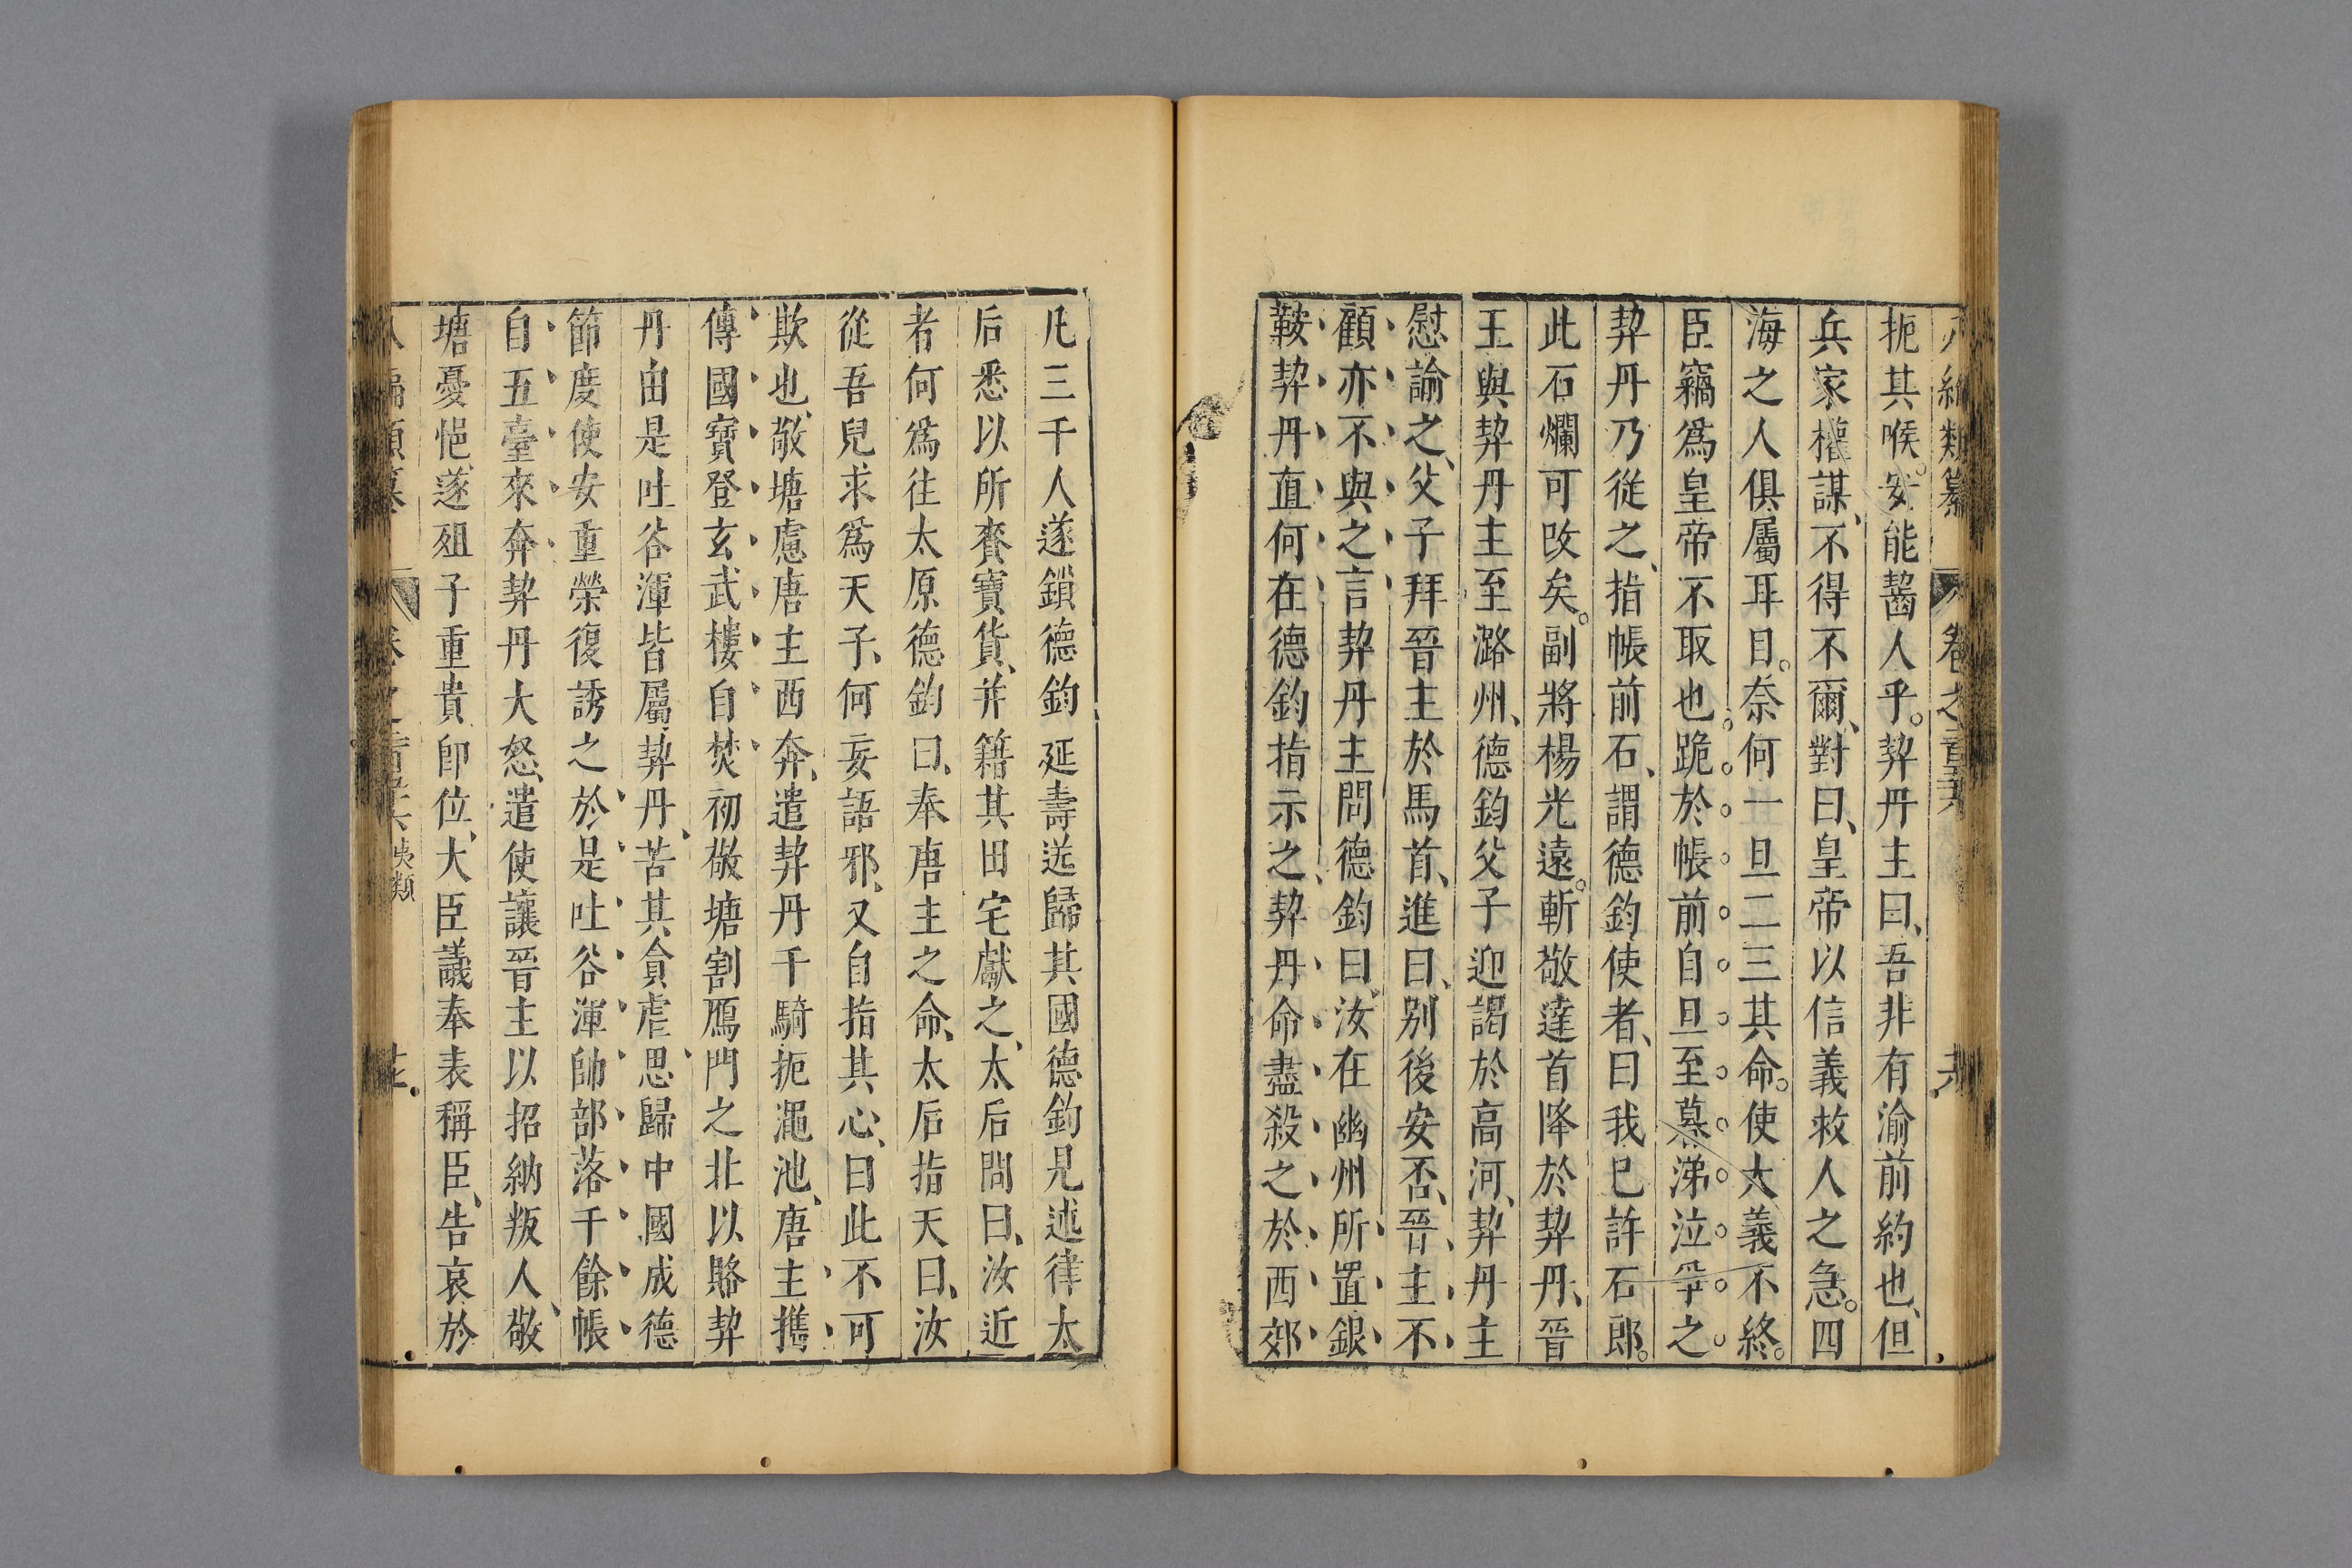 扼其喉安能齧人乎契丹主曰吾非有渝前約也但
兵家權謀不得不爾對曰皇帝以信義救人之急四
海之人俱屬耳目奈何一旦二三其命使大義不終
臣竊爲皇帝不取也跪於帳前自旦至暮涕泣爭之
契丹乃從之指帳前石謂德鈞使者曰我已許石郎
此石爛可改矣副將楊光遠斬敬達首降於契丹晉
王與契丹主至潞州德鈞父子迎謁於高河契丹主
慰諭之父子拜晉主於馬首進曰別後安否晉主不
顧亦不與之言契丹主問德鈞曰汝在幽州所置銀
鞍契丹直何在德鈞指示之契丹命盡殺之於西郊
凡三千人遂鎖德鈞延壽送歸其國德鈞見述律太
后悉以所賫寶貨并籍其田宅獻之太后問曰汝近
者何爲往太原德鈞曰奉唐主之命太后指天曰汝
從吾兒求爲天子何妄語邪又自指其心曰此不可
欺也敬塘慮唐主西奔遣契丹千騎扼澠池唐主攜
傳國寶登玄武樓自焚初敬塘割鴈門之北以賂契
丹由是吐谷渾皆屬契丹苦其貪虐思歸中國成德
節度使安重榮復誘之於是吐谷渾帥部落千餘帳
自五臺來奔契丹大怒遣使讓晉主以招納叛人敬
塘憂悒遂殂子重貴卽位大臣議奉表稱臣告哀於